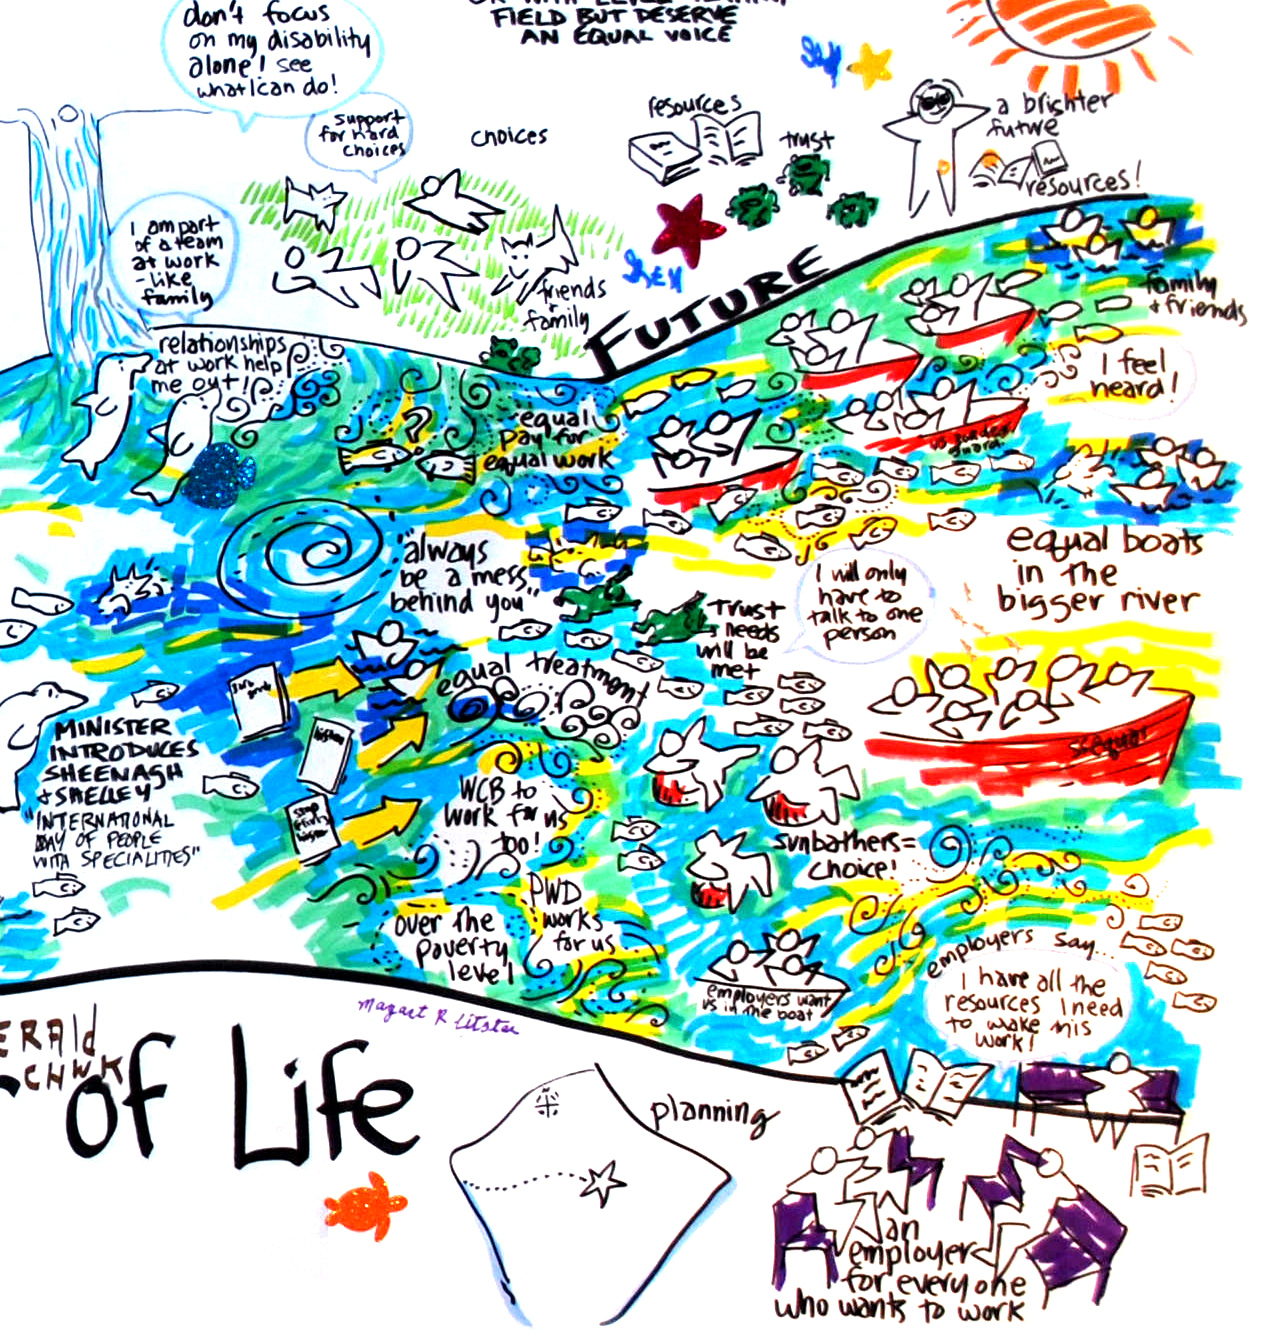 FIELD BUT DESERVE
AN EQUAL VOICE
don't focus
on my disability
alone! see
what I can do!
support
for hard
choices
choices
resources
trust
a brighter
future
resources!
I am part
of a team
at work
-like
family
friends
+
family
FUTURE
family
+ friends
relationships
at work help
me out!
I feel
heard!
equal
pay for
equal work
"always
be a mess
behind you"
equal boats
in the
bigger river
I will only
have to
talk to one
person
Trust
needs
will be
met
equal treatment
MINISTER
INTRODUCES
SHEENAGH
+ SHELLEY
"INTERNATIONAL
DAY OF PEOPLE
WITH SPECIALITIES"
WCB to
work for us
too!
sunbathers=
choice!
PWD
works
for us
over the
poverty
level!
employers want
us in the boat
employers say...
I have all the
resources I need
to make this
work!
ERALD
CHWK
of Life
planning
an
employer
for everyone
who wants to work